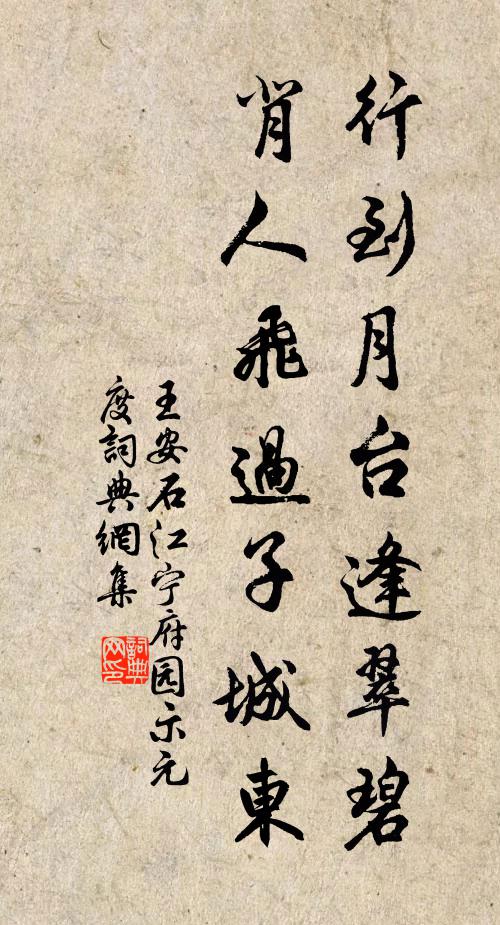 行到月台逢翠碧
背人飛過子城東
王安石江宁府园示元
度詞典網集
詞典网印